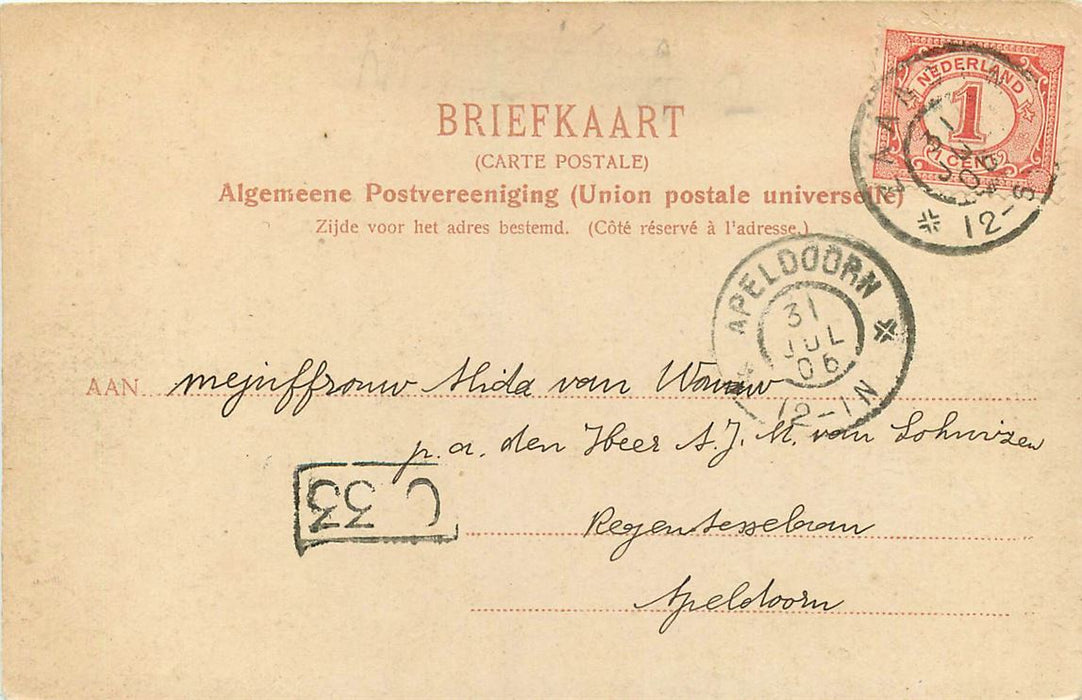 BRIEFKAART
(CARTE POSTALE)
Algemeene Postvereeniging (Union postale universelle)
Zijde voor het adres bestemd. (Côté réservé à l'adresse.)
NEDERLAND
1
1 CENT
31
12-
APELDOORN
31
JUL
06
12-1N
AAN mejuffrouw Alida van
p.a. den Heer A.J.M. van
C 33
Regentesselaan
Apeldoorn